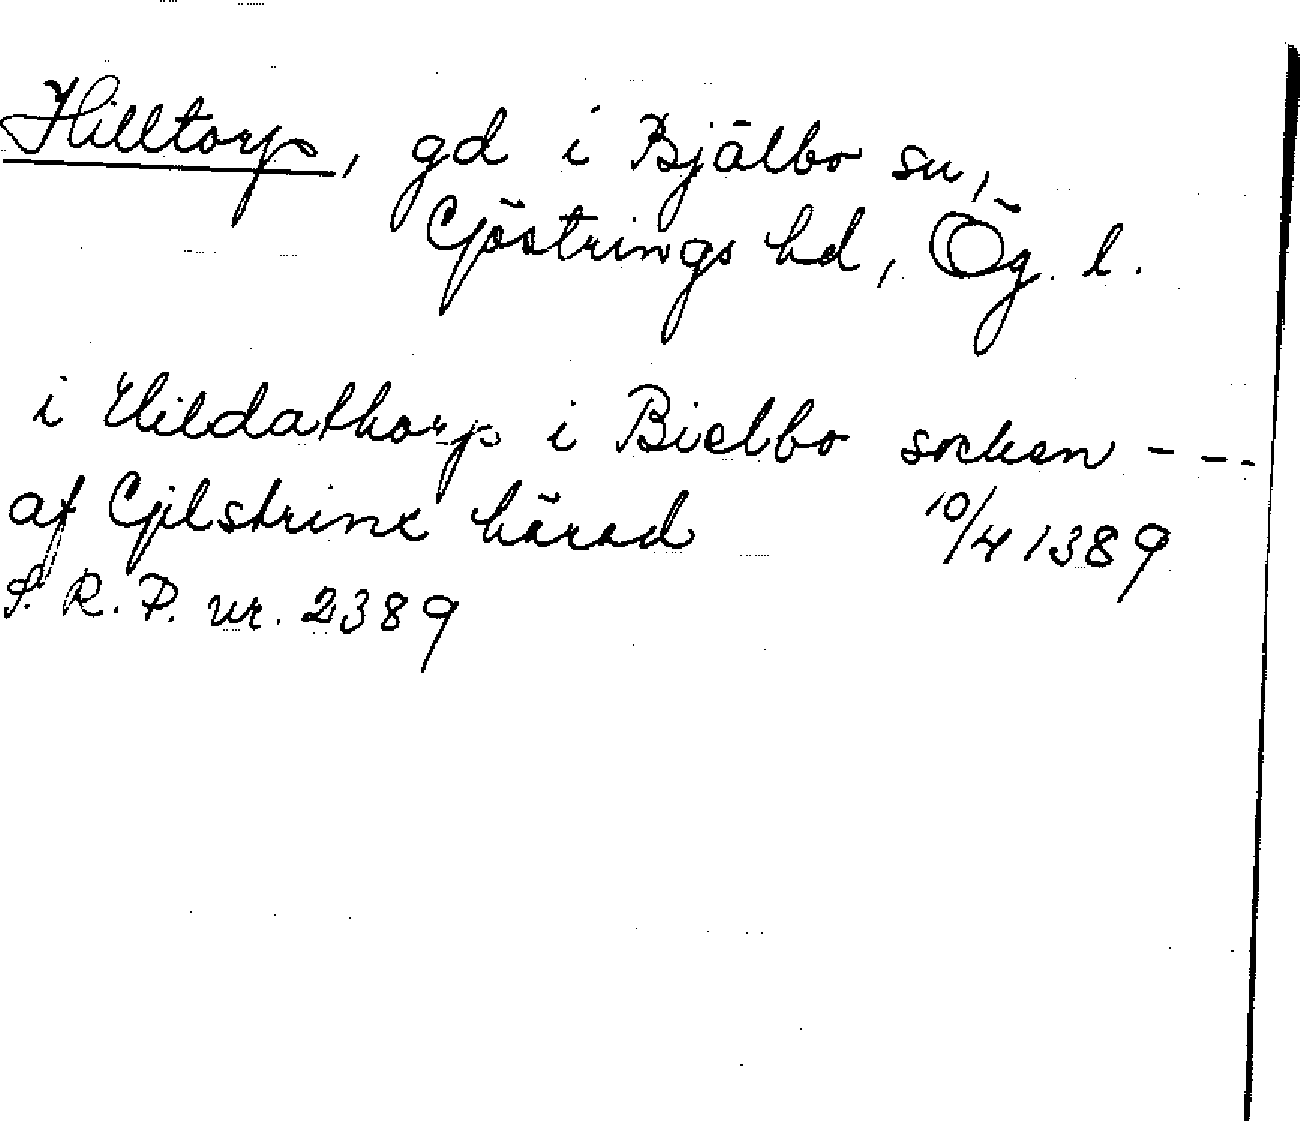 Hilltorp, gd i Bjälbo sn,
Gjöstrings hd, Ög. l.
i Hildathorp i Bielbo socken - - -
af Gilstrinx härad 10/4 1389
S. R. P. nr. 2389